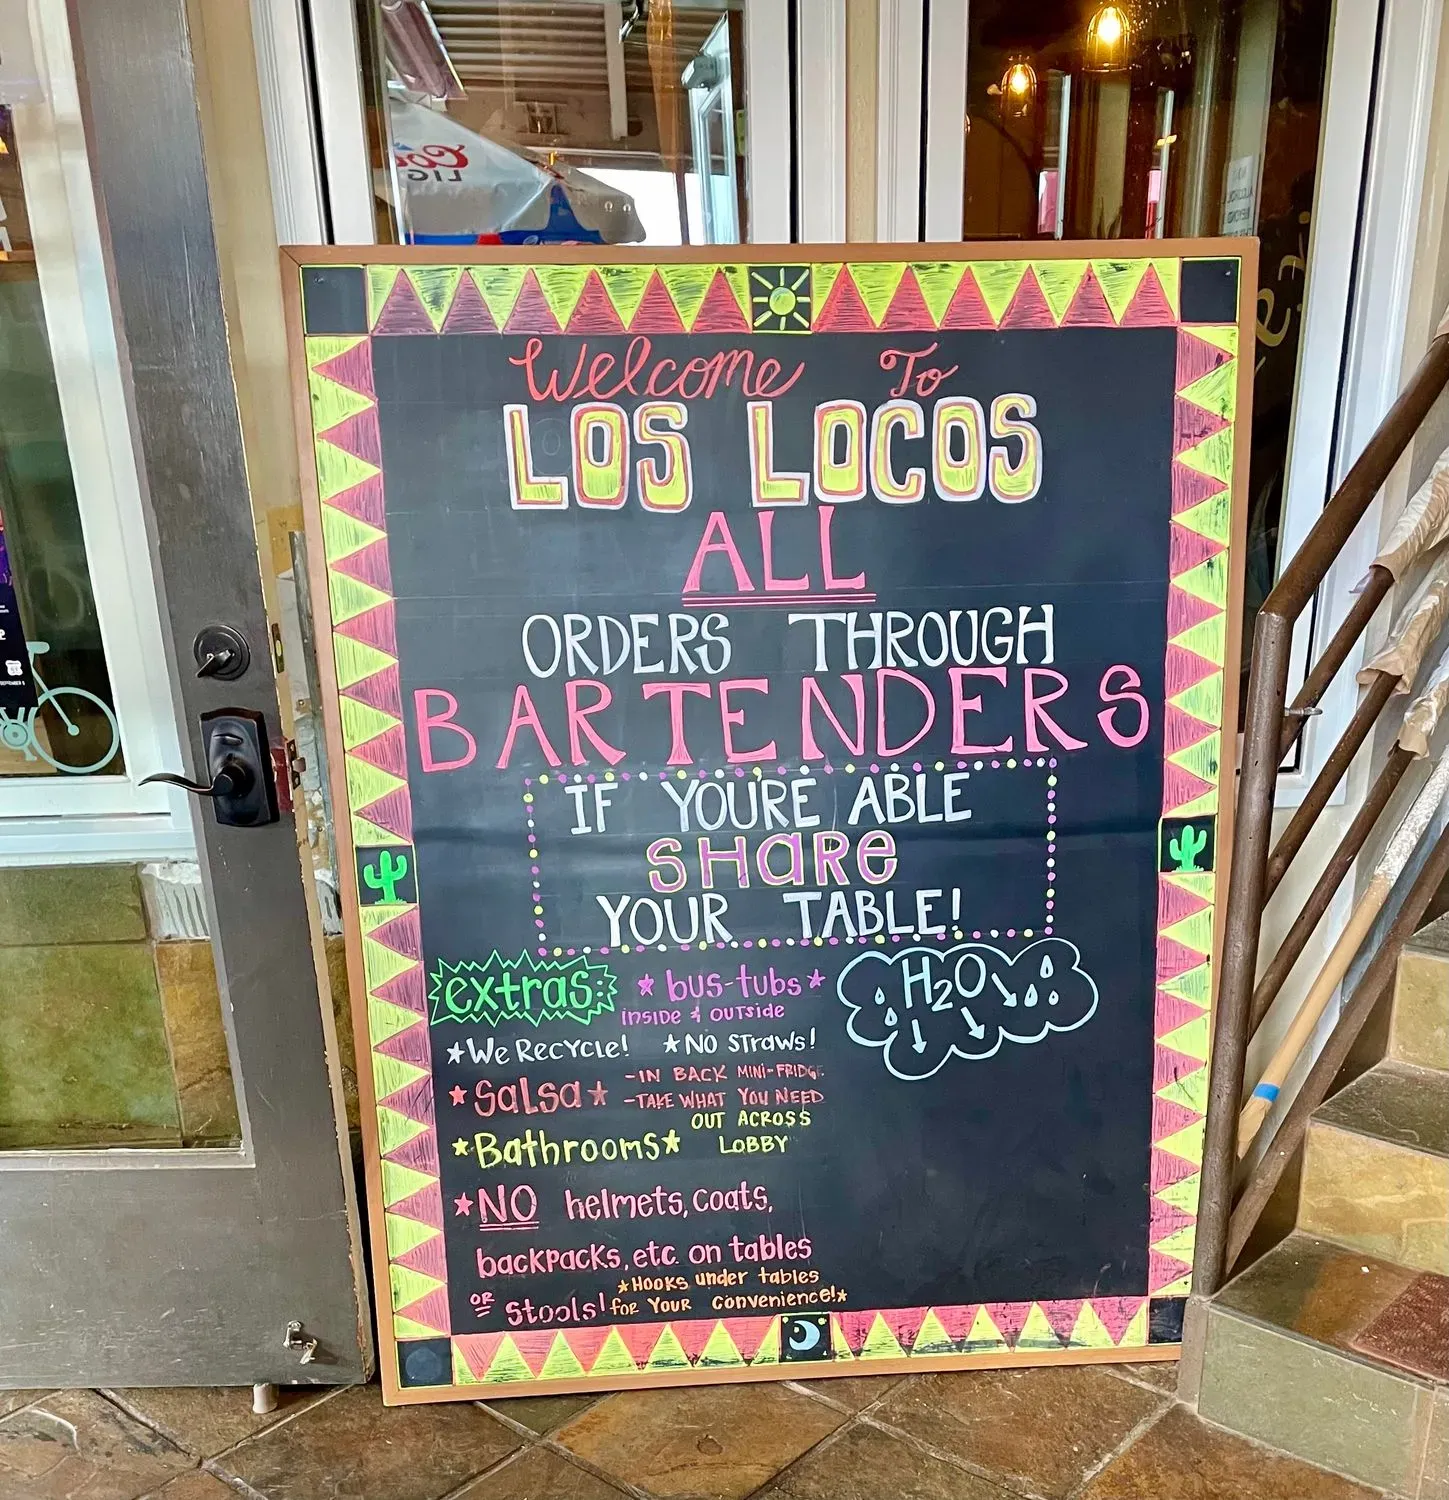 Welcome To
LOS LOCOS
ALL
ORDERS THROUGH
BARTENDERS
IF YOU'RE ABLE
SHARE
YOUR TABLE!
extras:
*bus-tubs*
INSIDE & OUTSIDE
H2O
*We Recycle! *NO STraws!
*Salsa* -IN BACK MINI-FRIDGE
-TAKE WHAT YOU NEED
*Bathrooms* OUT ACROSS
LOBBY
*NO helmets, coats,
backpacks, etc. on tables
OR Stools! *Hooks under tables
for Your convenience!*